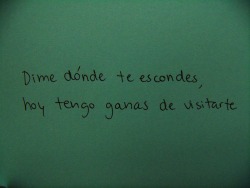 Dime dónde te escondes,
hoy tengo ganas de visitarte